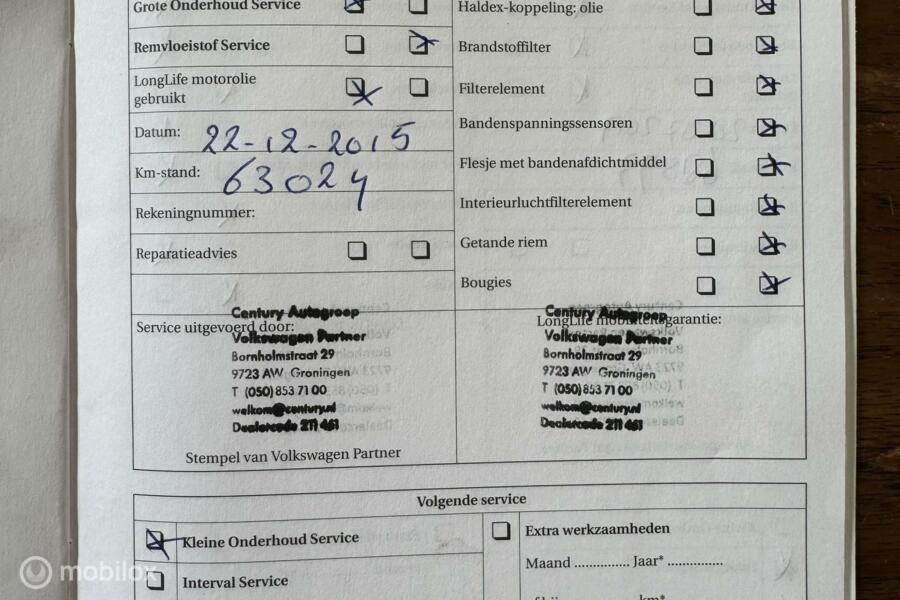 Grote Onderhoud Service
Remvloeistof Service
LongLife motorolie
gebruikt
Datum: 22-12-2015
Km-stand: 63024
Rekeningnummer:
Reparatieadvies
Haldex-koppeling: olie
Brandstoffilter
Filterelement
Bandenspanningssensoren
Flesje met bandenafdichtmiddel
Interieurluchtfilterelement
Getande riem
Bougies
Service uitgevoerd door:
Century Autogroep
Volkswagen Partner
Bornholmstraat 29
9723 AW Groningen
T (050) 853 71 00
welkom@century.nl
Dealercode 211 461
Stempel van Volkswagen Partner
LongLife mobiliteitsgarantie:
Century Autogroep
Volkswagen Partner
Bornholmstraat 29
9723 AW Groningen
T (050) 853 71 00
welkom@century.nl
Dealercode 211 461
Volgende service
Kleine Onderhoud Service
Interval Service
Extra werkzaamheden
Maand .............. Jaar* ..............
km*
mobilox